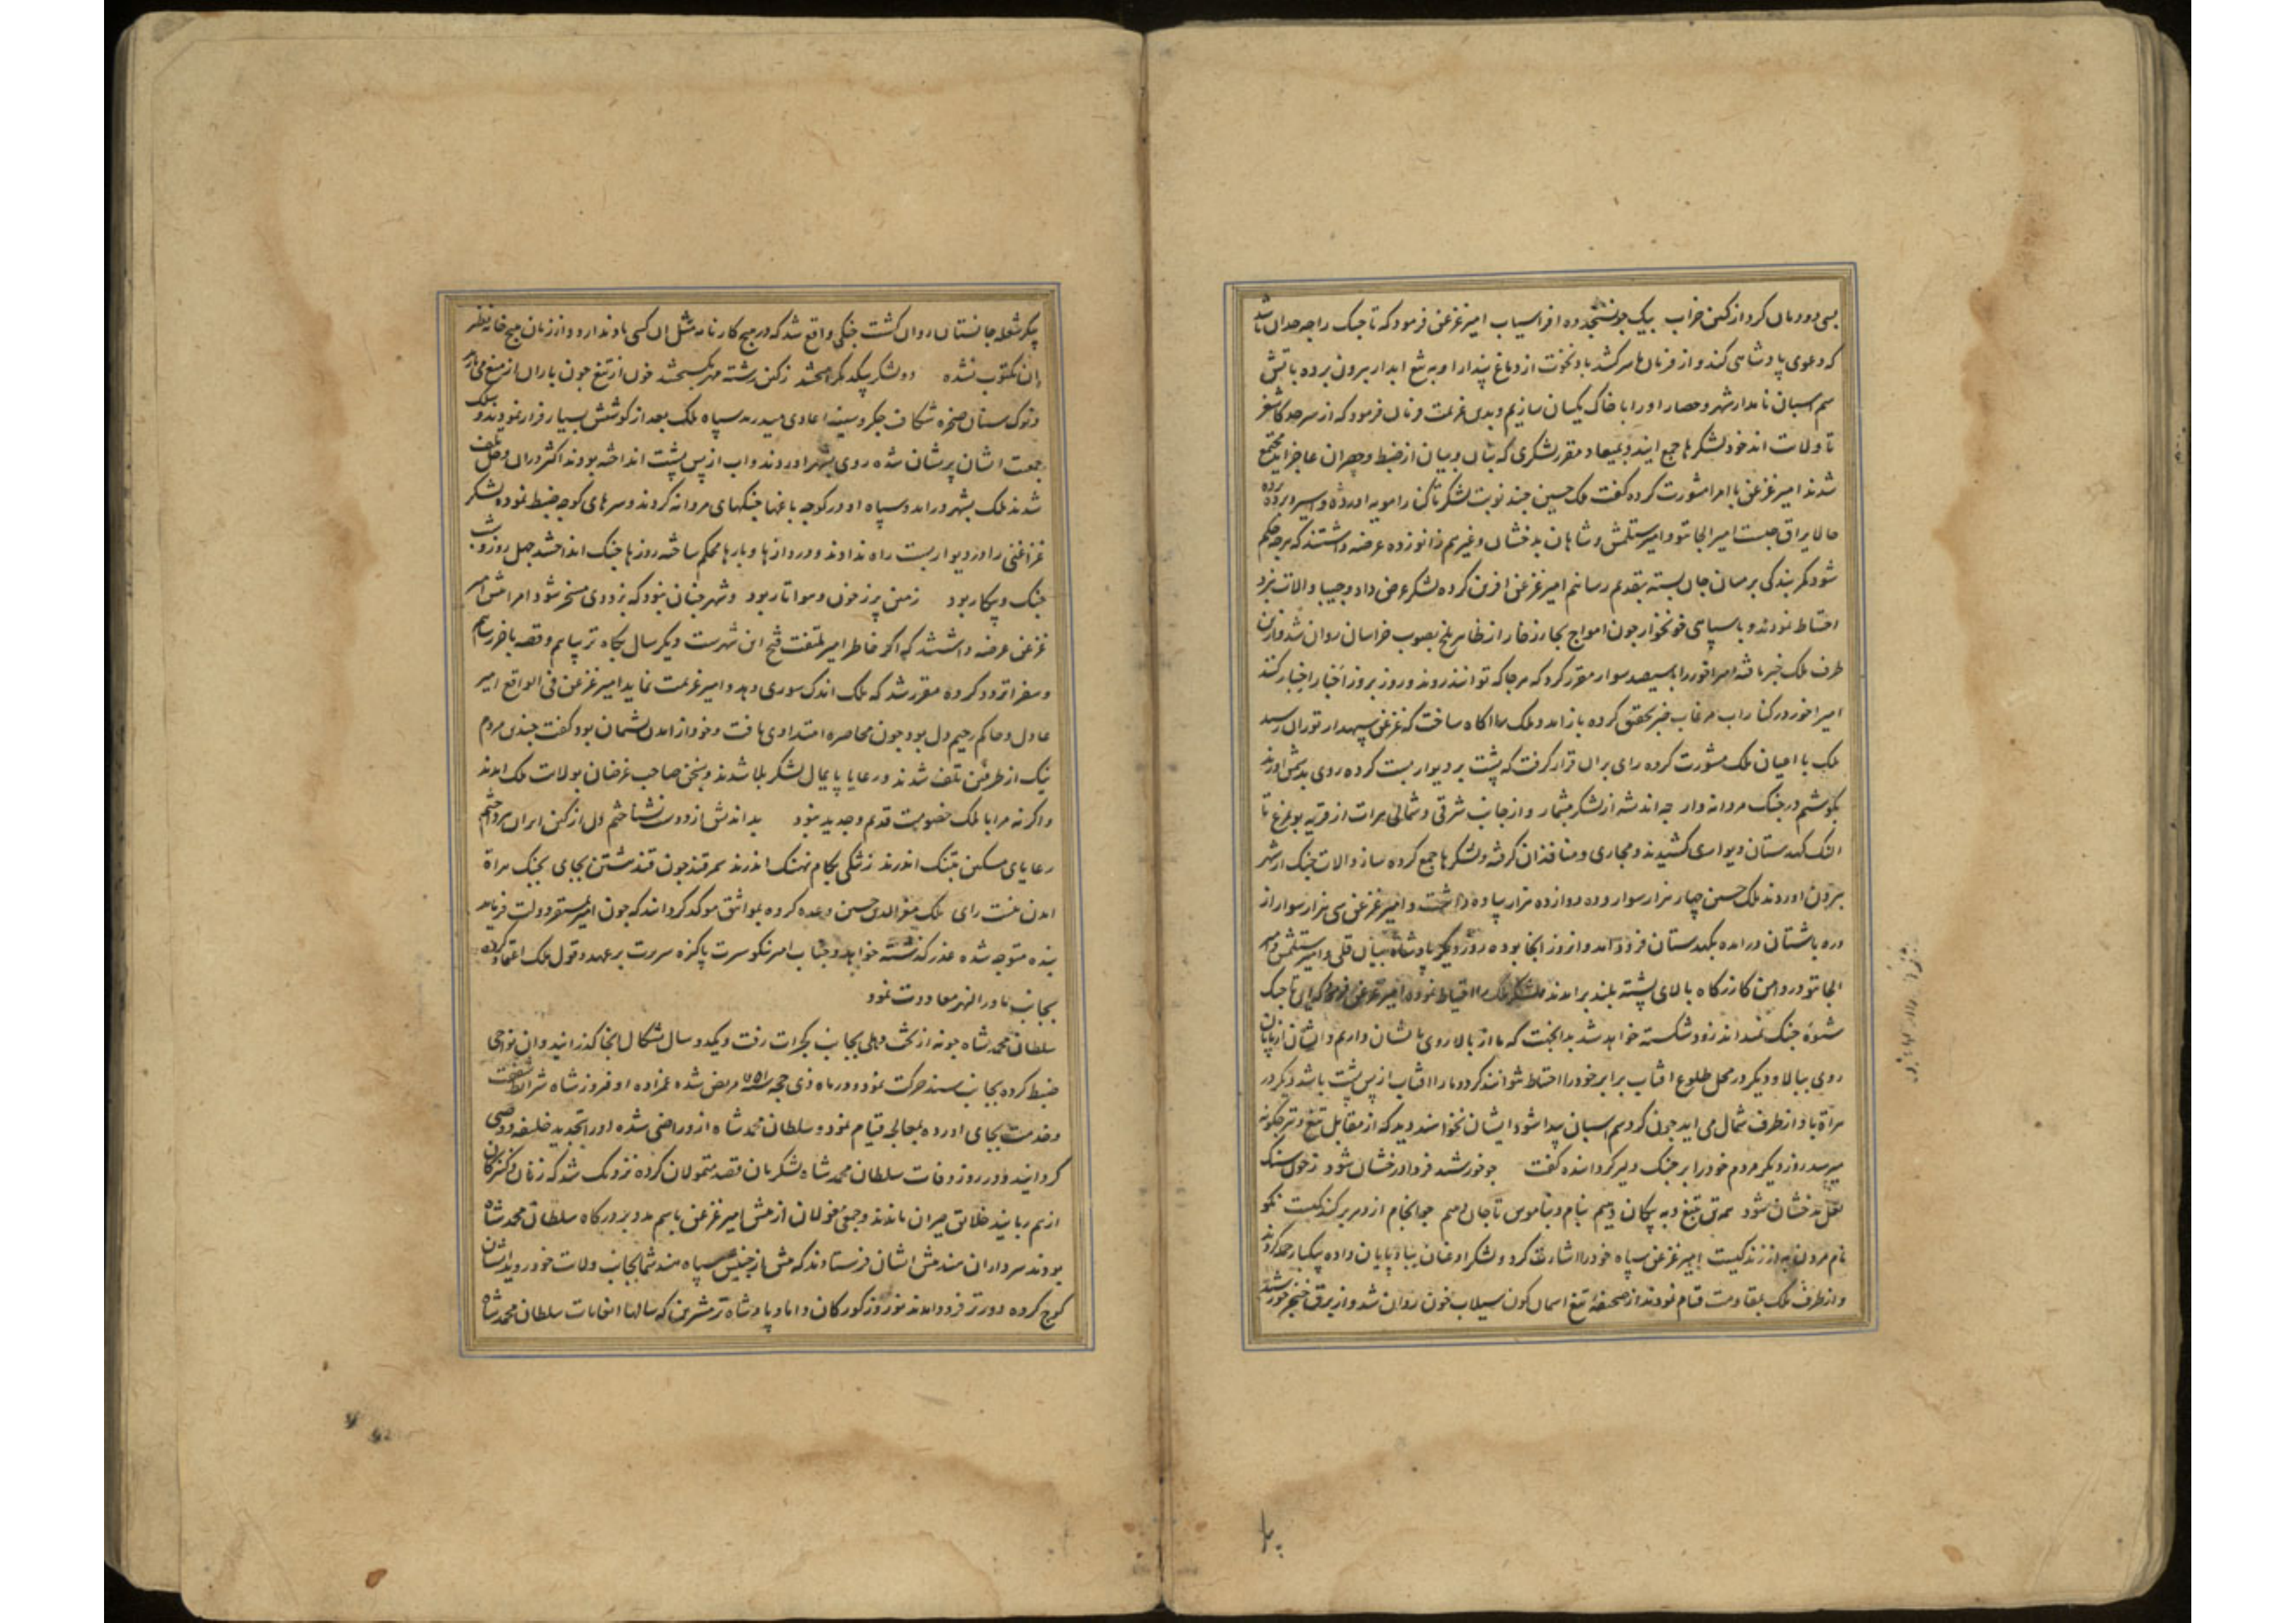 بسی دودمان کرد از کین خراب بیک جو نسنجیده افراسیاب امیر غزغن فرمود که تاجیک را چه حد آن باشد
که دعوی پادشاهی کند و از فرمان ما سر کشد باد نخوت از دماغ پندار او به تیغ ابدار بیرون برده باتش
سم اسبان نامدار شهر و حصار او را با خاک یکسان سازیم و بدین عزیمت فرمان فرمود که از سرحد کاشغر
تا ولایت اندخود لشکرها جمع ایند و بمیعاد مقرر لشکری که بنان و بیان از ضبط و حصر ان عاجز اید مجتمع
شدند امیر غزغن با امرا مشورت کرده گفت ملک حسین چند نوبت لشکر تا کنار امویه اورده و اسیر برده
حالا یراق چیست امیر الجایتو و امیر ستلمش و شاهان بدخشان و غیرهم زانو زده عرضه داشتند که هرچه حکم
شود کمر بندگی بر میان جان بسته بتقدیم رسانیم امیر غزغن افرین کرده لشکر عرض داد و جیبا و الات نبرد
احتیاط نمودند و با سپاهی خونخوار چون امواج بحار زخار از ظاهر بلخ بصوب خراسان روان شد و ازین
طرف ملک خبر یافته امیر اخور را با سیصد سوار مقرر کرد که هرجا که توانند روند و روز بروز اخبار اخبار کنند
امیر اخور در کنار اب مرغاب خبر تحقیق کرده باز امد و ملک را اکاه ساخت که غزغن سپهدار توران رسید
ملک با اعیان ملک مشورت کرده رای بران قرار گرفت که پشت بر دیوار بست کرده روی بدشمن اورند
بکوشیم در جنک مردانه وار چه اندیشه از لشکر بیشمار و از جانب شرقی و شمالی هرات از قریه بوی مرغ تا
النک کهدستان دیواری کشیدند و مجاری و منافذ ان گرفته و لشکرها جمع کرده ساز و الات جنک از شهر
بیرون اوردند ملک حسین چهار هزار سوار و ده دوازده هزار پیاده داشت و امیر غزغن سی هزار سوار از
دره باشتان در امده بکهدستان فرود امد و انروز انجا بوده روز دیگر پادشاه بیان قلی و امیر ستلمش و امیر
الجایتو در دامن کازرکاه بالای پشته بلند بر امدند و لشکر ملک را احتیاط نموده امیر غزغن فرمود که این تاجیک
شیوه جنک نمیداند زود شکسته خواهد شد بدانجهت که ما از بالا روی باشان داریم و ایشان از پایان
روی ببالا و دیگر در محل طلوع افتاب برابر خود را احتیاط نتوانند کرد و ما را افتاب از پس پشت باشد و دیگر در
هراة باد از طرف شمال می اید چون گرد سم اسبان پیدا شود ایشان نخواهند دید که از مقابل تیغ و تیر چگونه
میرسد روز دیگر مردم خود را بر جنک دلیر گردانیده گفت چو خورشید فردا درخشان شود ز خون سنک
لعل بدخشان شود همه تن تیغ و به پیکان دهیم بنام و بناموس تا جان دهیم چو انجام از دهر برکندنیست نکو
نام مردن به از زندگیست امیر غزغن سپاه خود را اشارت کرد و لشکر او عنان ببادپایان داده بیکبار حمله کردند
و از طرف ملک بمقاومت قیام نمودند از صحیفه تیغ اسمان کون سیلاب خون روان شد و از برق خنجر خورشید
پیکر شعله جانستان روان گشت جنگی واقع شد که در هیچ کارنامه مثل ان کسی یاد ندارد و از زمان هیچ خامه نظیر
ان مکتوب نشده دو لشکر بیکدیگر امیختند ز کین رشته مهر بگسیختند خون از تیغ چون باران از میغ می بارید
و نوک سنان صخره شکاف جگر و سینه اعادی میدرید سپاه ملک بعد از کوشش بسیار فرار نمودند و سلک
جمعیت ایشان پریشان شده روی بشهر اوردند و اب از پس پشت انداخته بودند اکثر دران وحل تلف
شدند ملک بشهر در امد و سپاه او در کوچه باغها جنگهای مردانه کردند و سرهای کوچه ضبط نموده لشکر
غزاغنی را در دیوار بست راه ندادند و دروازها و بارها محکم ساخته روزها جنک انداختند چهل روز و شب
جنک و پیکار بود زمین پر ز خون و هوا تار بود و شهر چنان نبود که بزودی مسخر شود امرا پیش امیر
غزغن عرضه داشتند که اگر خاطر امیر ملتفت فتح این شهرست دیگر سال بگاه تر بیاییم و قصه باخر رسانیم
و سفرا تردد کرده مقرر شد که ملک اندک سوری دهد و امیر عزیمت نماید امیر غزغن فی الواقع امیر
عادل و حاکم رحیم دل بود چون محاصره امتدادی یافت و خود از امدن پشیمان بود گفت چندین مردم
نیک از طرفین تلف شدند و رعایا پایمال لشکر بلا شدند و بسخن صاحب غرضان بولایت ملک امدند
و اگر نه مرا با ملک خصومت قدیم و جدید نبود بداندیش از دوست نشناختم دل از کین ایران بپرداختم
رعایای مسکین بتنک اندرند ز تنگی بکام نهنک اندرند سمرقند چون قند هشتن بجای بجنک هراة
امدن نیست رای ملک معزالدین حسین وعده کرده بمواثیق موکد گردانید که چون امیر بمستقر دولت فرماید
بنده متوجه شده عذر گذشته خواهد و جناب امیر نیکو سیرت پاکیزه سریرت بر عهد و قول ملک اعتماد کرده
بجانب ماوراالنهر معاودت نمود
سلطان محمد شاه جونه از تخت دهلی بجانب کجرات رفت و یکدو سال بشکال انجا گذرانید و ان نواحی
ضبط کرده بجانب سند حرکت نمود و در ماه ذی حجه سنه ۷۵۱ مریض شده عمزاده او فیروز شاه شرایط شفقت
و خدمت بجای اورده بمعالجه قیام نمود و سلطان محمد شاه ازو راضی شده او را بتجدید خلیفه و وصی
گردانید و در روز وفات سلطان محمد شاه لشکریان قصد متمولان کرده نزدیک شد که زنان و کنیزکان
از هم ربایند خلایق حیران ماندند و جمعی مغولان از پیش امیر غزغن باسم مدد بدرگاه سلطان محمد شاه
بودند سرداران هند پیش ایشان فرستادند که پیش از جنبش سپاه هند شما بجانب ولایت خود روید ایشان
کوچ کرده دورتر فرود امدند نوروز کورکان داماد پادشاه ترمشیرین که سالها انعامات سلطان محمد شاه